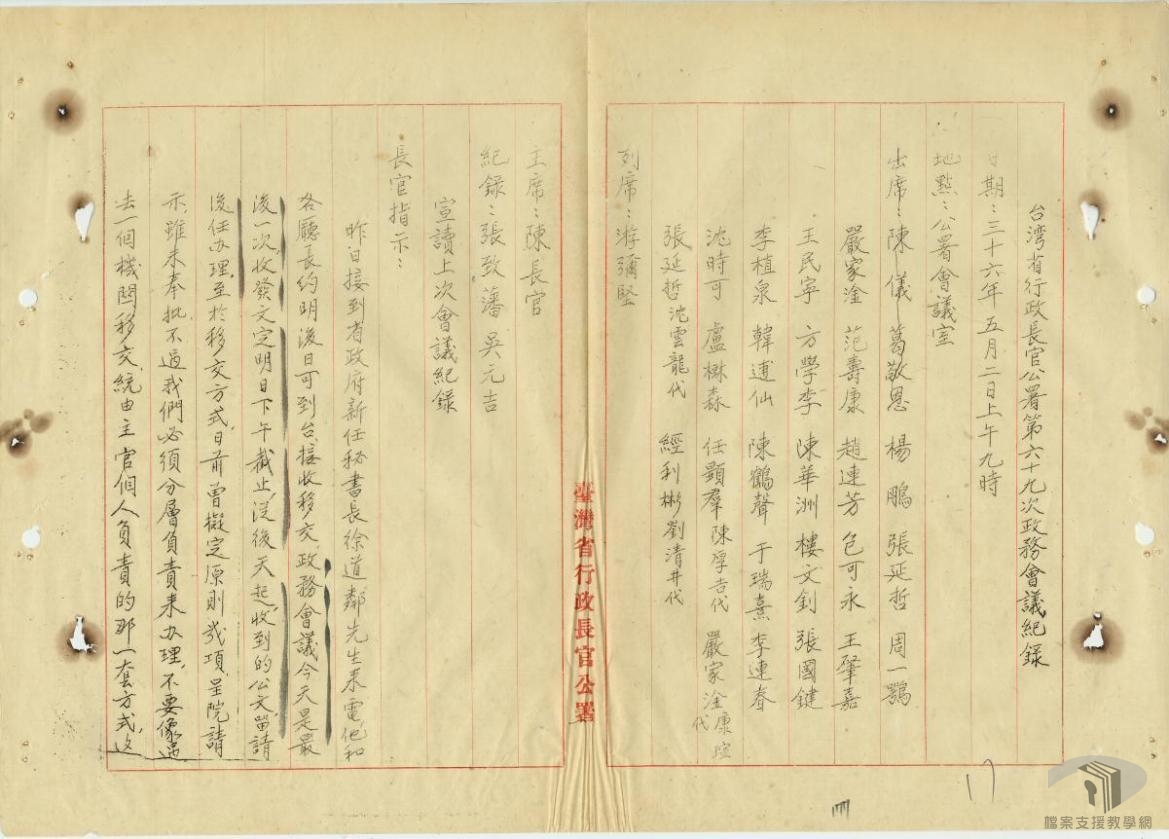 台湾省行政長官公署第六十九次政務會議紀錄
日期：三十六年五月二日上午九時
地點：公署會議室
出席：陳儀 葛敬恩 楊鵬 張延哲 周一鶚
嚴家淦 范壽康 趙連芳 包可永 王肇嘉
王民寧 方學李 陳華洲 樓文釗 張國鍵
李植泉 韓逋仙 陳鶴聲 于瑞熹 李連春
沈時可 盧楙森 任顯羣陳厚吉代 嚴家淦康瑄代
張延哲沈雲龍代 經利彬劉清井代
列席：游彌堅
臺灣省行政長官公署
主席：陳長官
紀錄：張致藩 吳元吉
宣讀上次會議紀錄
長官指示：
昨日接到省政府新任秘書長徐道鄰先生来電，他和
各廳長約明後日可到台，接收移交，政務會議今天是最
後一次，收發文定明日下午截止，從後天起，收到的公文，留請
後任办理，至於移交方式，日前曾擬定原則幾項，呈院請
示，雖未奉批，不過我們必須分層負責来办理，不要像過
去一個機関移交，統由主官個人負責的那一套方式，这
17
檔案支援教學網